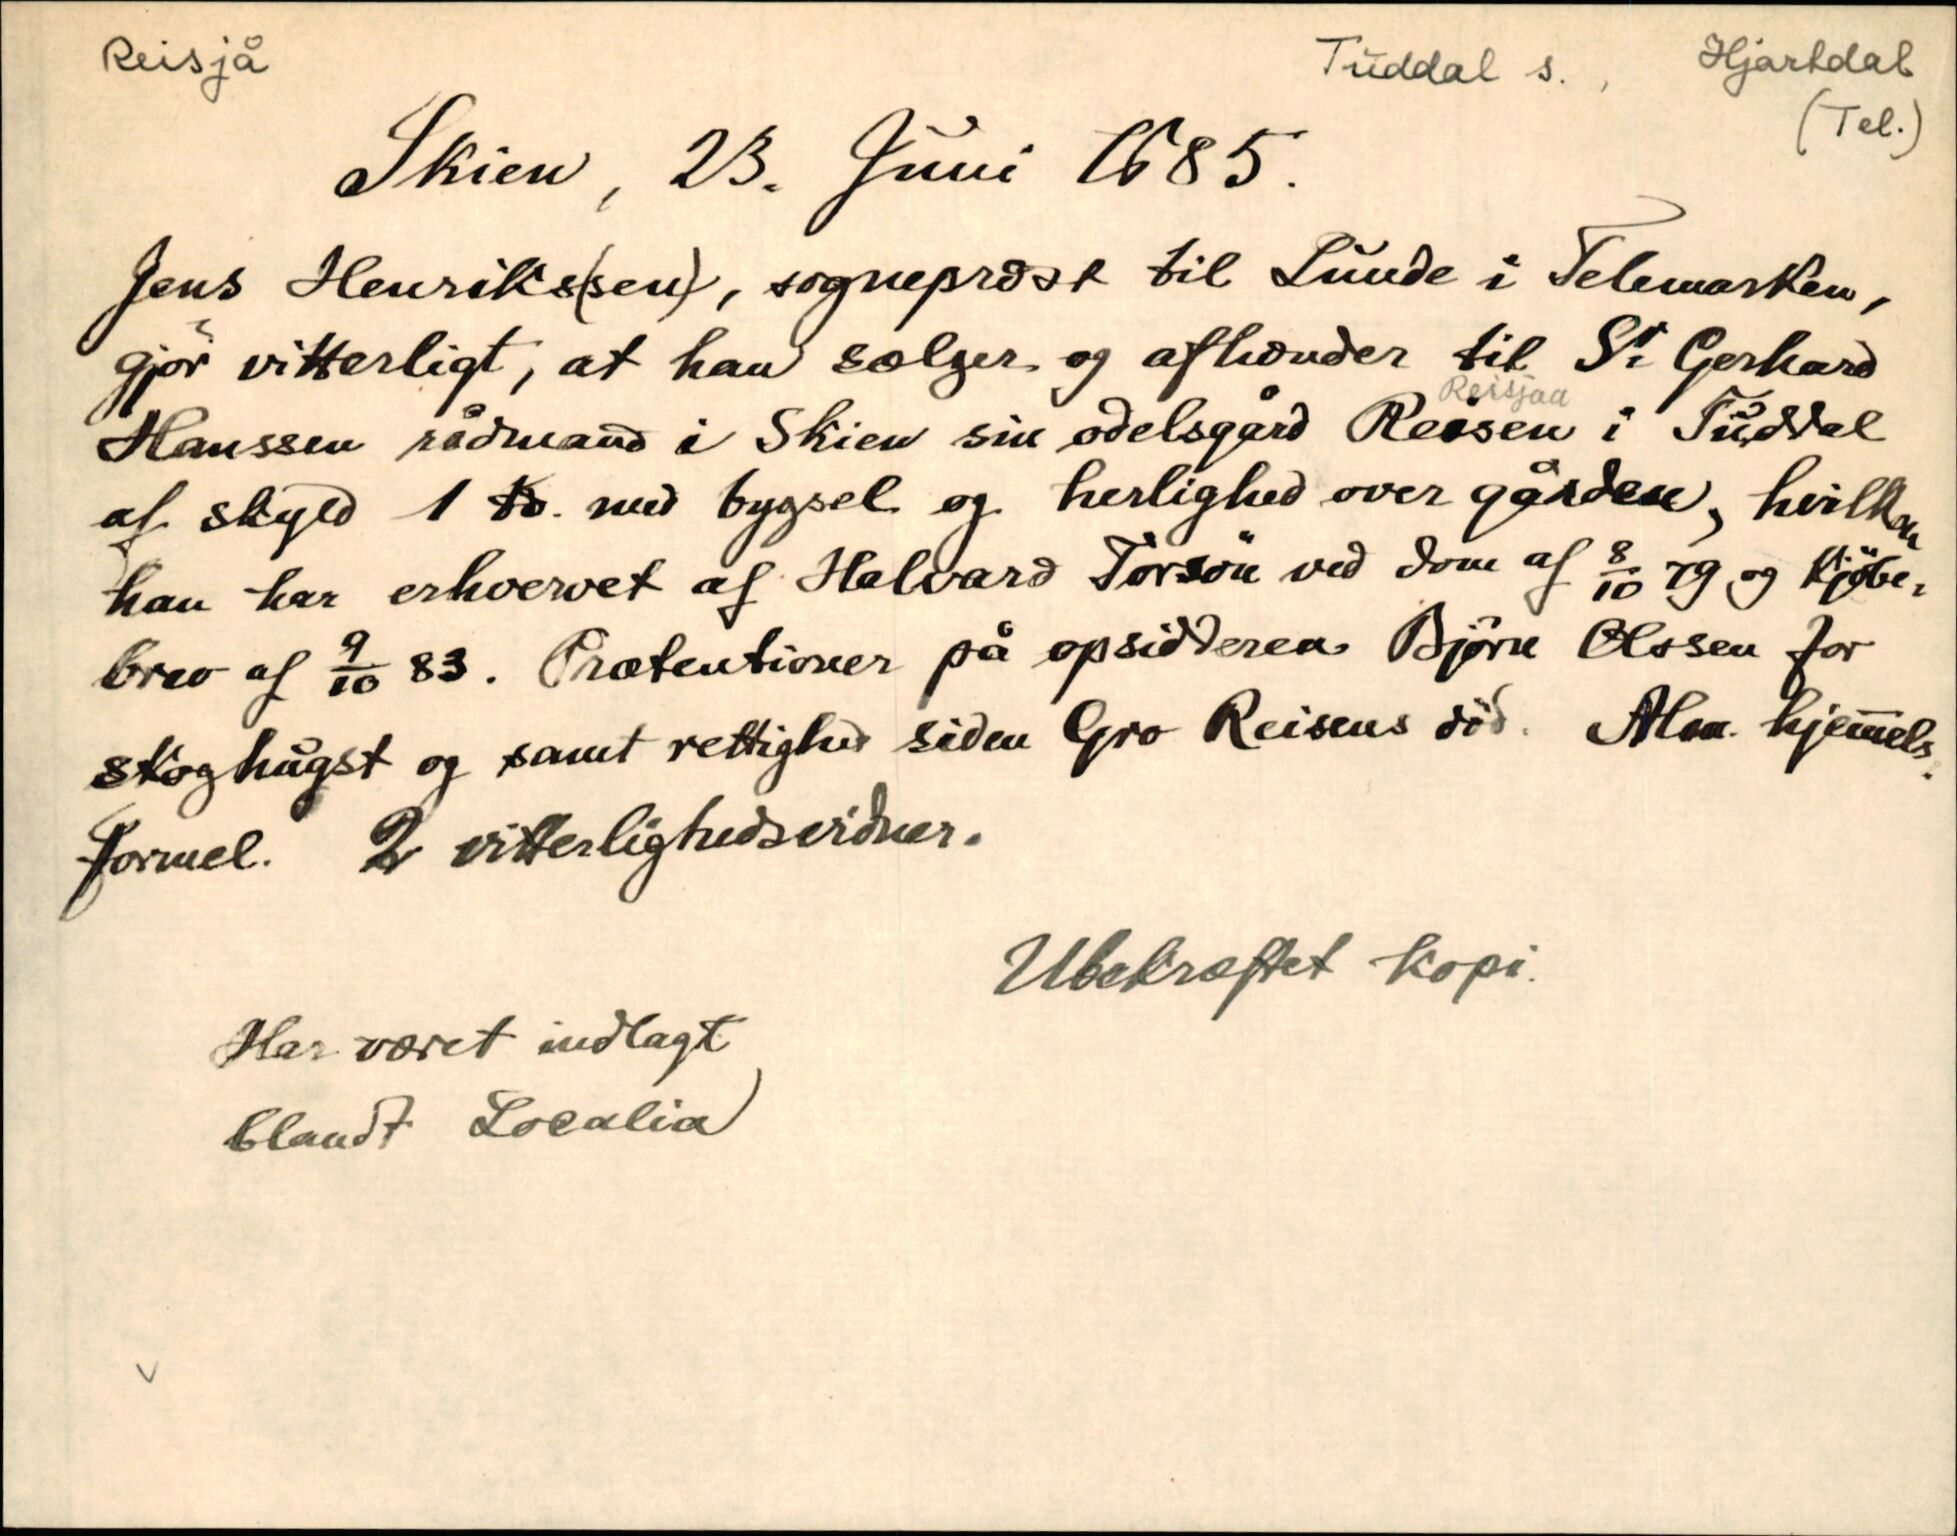 Reisjå
Tuddal s., Hjartdal
(Tel.)
Skien, 23. Juni 1685.
Jens Henriks(sen), sognepræst til Lunde i Telemarken,
gjör vitterligt, at han sælger og afhænder til Sr Gerhard
Reisjaa
Hanssen rådmand i Skien sin odelsgård Reisen i Tuddal
af skyld 1 td. med bygsel og herlighed over gården, hvilken
han har erhvervet af Halvard Torsön ved dom af 8/10 79 og kjöbe-
brev af 9/10 83. Prætentioner på opsidderen Björn Olssen for
skoghugst og samt rettighed siden Gro Reisens död. Alm. hjem̅els-
formel. 2 vitterlighedsvidner.
Ubekræftet kopi.
Har været indlagt
blandt Localia